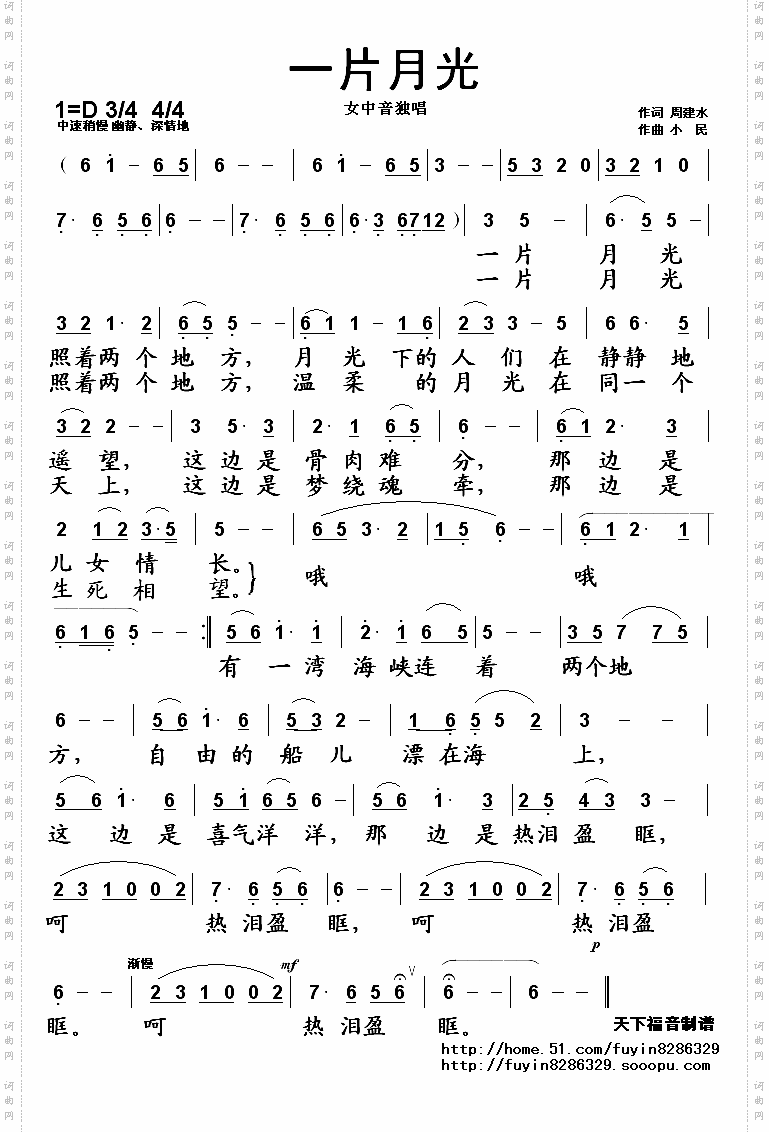 一片月光
1=D 3/4 4/4
女中音独唱
作词 周建水
中速稍慢 幽静、深情地
作曲 小 民
( 6 1 - 6 5 | 6 - - | 6 1 - 6 5 | 3 - - | 5 3 2 0 | 3 2 1 0 |
7· 6 5 6 | 6 - - | 7· 6 5 6 | 6· 3 6 7 1 2 ) | 3 5 - | 6· 5 5 - |
一 片 月 光
一 片 月 光
3 2 1· 2 | 6 5 5 - - | 6 1 1 - 1 6 | 2 3 3 - 5 | 6 6· 5 |
照着两 个 地 方, 月 光 下的 人 们 在 静静 地
照着两 个 地 方, 温 柔 的 月 光 在 同一 个
3 2 2 - - | 3 5· 3 | 2· 1 6 5 | 6 - - | 6 1 2· 3 |
遥 望, 这 边 是 骨 肉 难 分, 那 边 是
天 上, 这 边 是 梦 绕 魂 牵, 那 边 是
2 1 2 3· 5 | 5 - - | 6 5 3· 2 | 1 5 6 - | 6 1 2· 1 |
儿 女 情 长。 哦 哦
生 死 相 望。
6 1 6 5 - - :| 5 6 1· 1 | 2· 1 6 5 | 5 - - | 3 5 7 7 5 |
有 一 湾 海 峡连 着 两个地
6 - - | 5 6 1· 6 | 5 3 2 - | 1 6 5 5 2 | 3 - - |
方, 自 由 的 船 儿 漂 在海 上,
5 6 1· 6 | 5 1 6 5 6 - | 5 6 1· 3 | 2 5 4 3 3 - |
这 边 是 喜气洋 洋, 那 边 是 热泪 盈 眶,
2 3 1 0 0 2 | 7· 6 5 6 | 6 - - | 2 3 1 0 0 2 | 7· 6 5 6 |
呵 热 泪盈 眶, 呵 热 泪盈
p
渐慢 mf V
6 - - | 2 3 1 0 0 2 | 7· 6 5 6 | 6 - - 6 - - ||
眶。 呵 热 泪盈 眶。
天下福音制谱
http://home.51.com/fuyin8286329
http://fuyin8286329.sooopu.com
词曲网